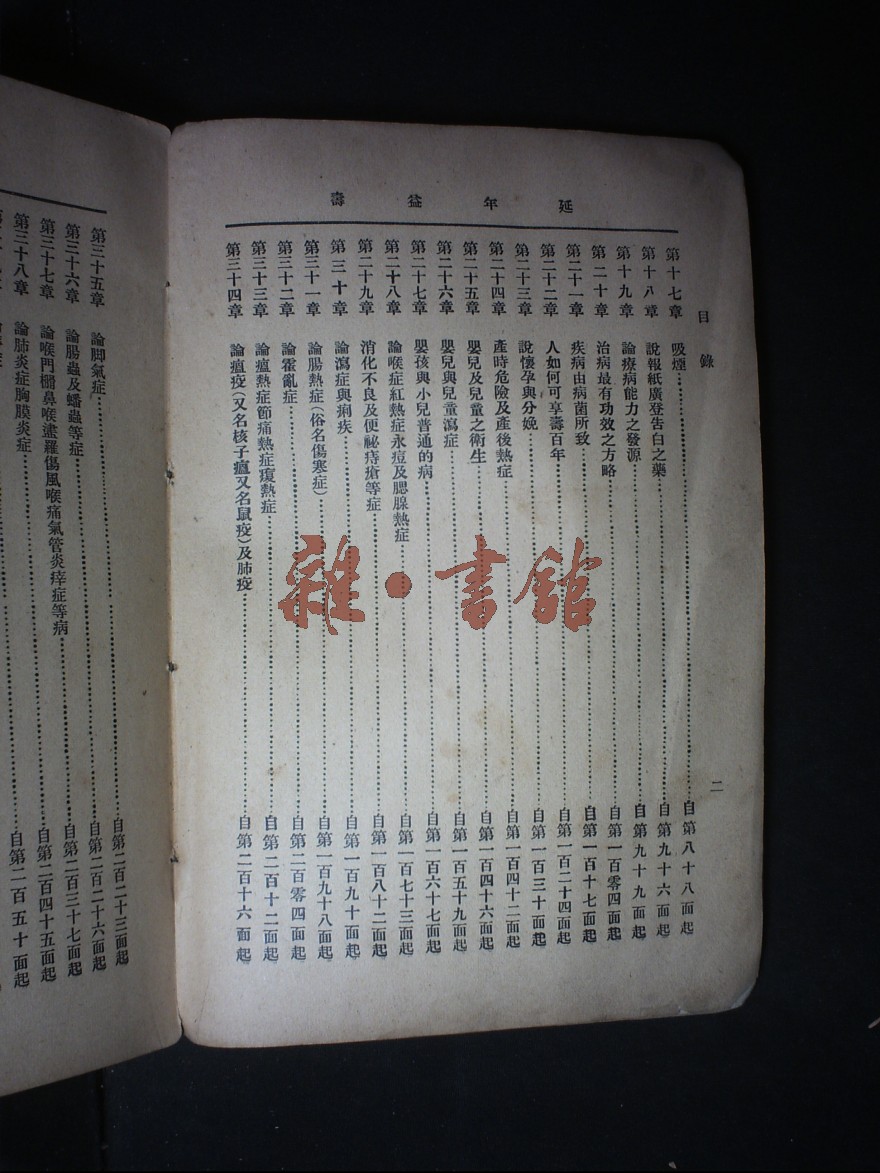 延年益壽
目錄
二
第十七章 吸煙 自第八十八面起
第十八章 說報紙廣登告白之藥 自第九十六面起
第十九章 論療病能力之發源 自第九十九面起
第二十章 治病最有功效之方略 自第一百零四面起
第二十一章 疾病由病菌所致 自第一百十七面起
第二十二章 人如何可享壽百年 自第一百二十四面起
第二十三章 說懷孕與分娩 自第一百三十面起
第二十四章 產時危險及產後熱症 自第一百四十二面起
第二十五章 嬰兒及兒童之衛生 自第一百四十六面起
第二十六章 嬰兒與兒童瀉症 自第一百五十九面起
第二十七章 嬰孩與小兒普通的病 自第一百六十七面起
第二十八章 論喉症紅熱症水痘及腮腺熱症 自第一百七十三面起
第二十九章 消化不良及便祕痔瘡等症 自第一百八十二面起
第三十章 論瀉症與痢疾 自第一百九十面起
第三十一章 論腸熱症(俗名傷寒症) 自第一百九十八面起
第三十二章 論霍亂症 自第二百零四面起
第三十三章 論瘟熱症節痛熱症復熱症 自第二百十二面起
第三十四章 論瘟疫(又名核子瘟又名鼠疫)及肺疫 自第二百十六面起
第三十五章 論脚氣症 自第二百二十三面起
第三十六章 論腸蟲及蟠蟲等症 自第二百二十六面起
第三十七章 論喉門癰鼻喉盪羅傷風喉痛氣管炎痒症等病 自第二百三十七面起
第三十八章 論肺炎症胸膜炎症 自第二百四十五面起
自第二百五十面起
雜·書館